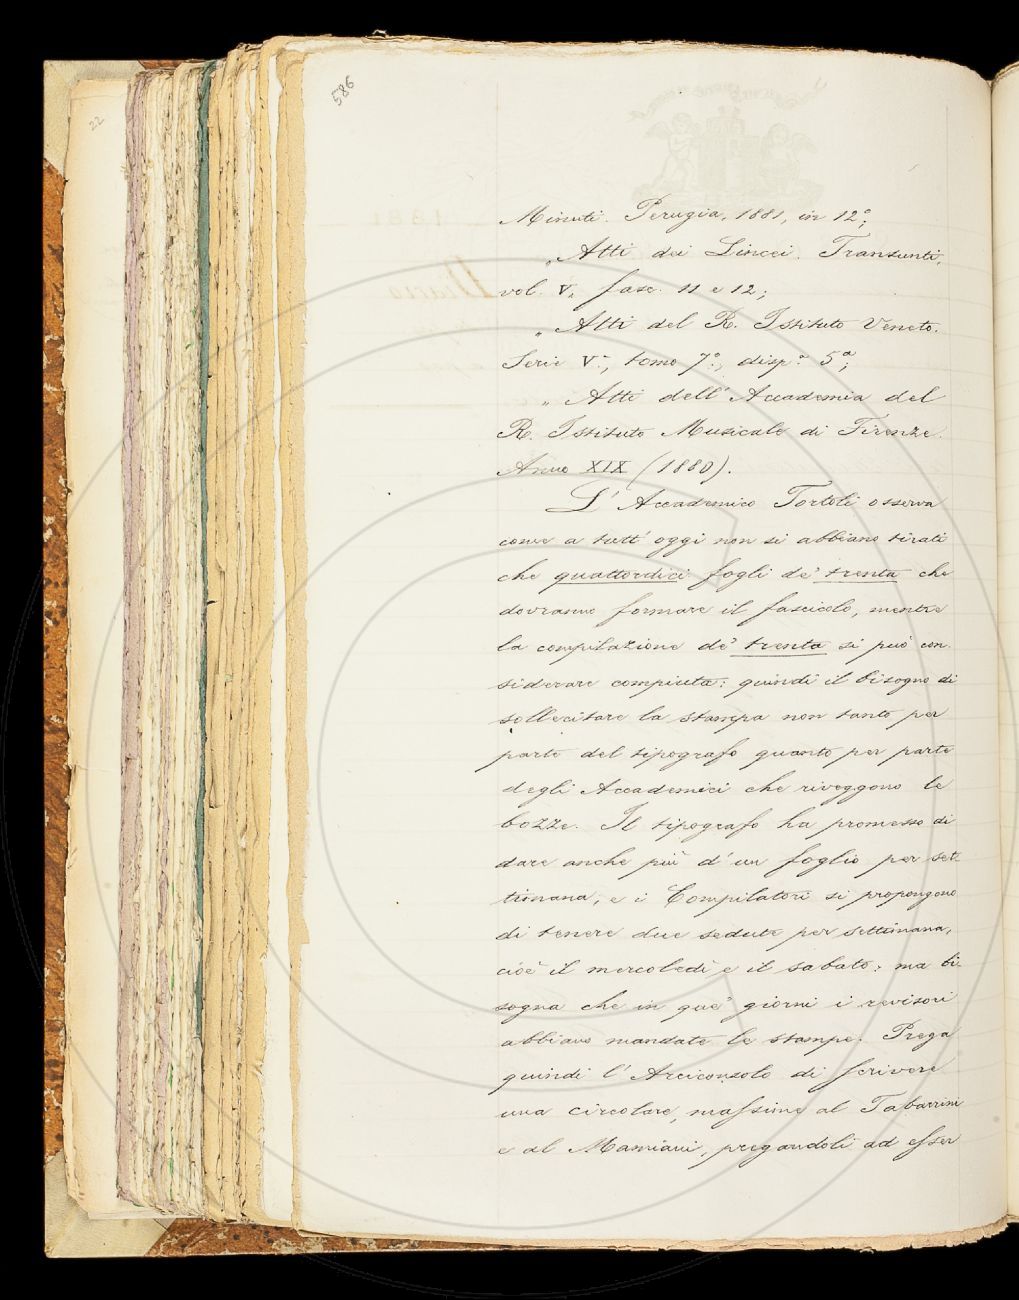 586
22
Minuti. Perugia, 1881, in 12°;
„ Atti dei Lincei. Transunti,
vol. V., fasc. 11 e 12;
„ Atti del R. Istituto Veneto.
Serie V.ª, tomo 7°., disp.ª 5ª;
„ Atti dell'Accademia del
R. Istituto Musicale di Firenze.
Anno XIX (1880).
L'Accademico Tortoli osserva
come a tutt'oggi non si abbiano tirati
che quattordici fogli de' trenta che
dovranno formare il fascicolo, mentre
la compilazione de' trenta si può con
siderare compiuta: quindi il bisogno di
sollecitare la stampa non tanto per
parte del tipografo quanto per parte
degli Accademici che riveggono le
bozze. Il tipografo ha promesso di
dare anche più d'un foglio per set
timana, e i Compilatori si propongono
di tenere due sedute per settimana,
cioè il mercoledì e il sabato; ma bi
sogna che in que' giorni i revisori
abbiano mandate le stampe. Prega
quindi l'Arciconsolo di scrivere
una circolare, massime al Tabarrini
e al Mamiani, pregandoli ad esser